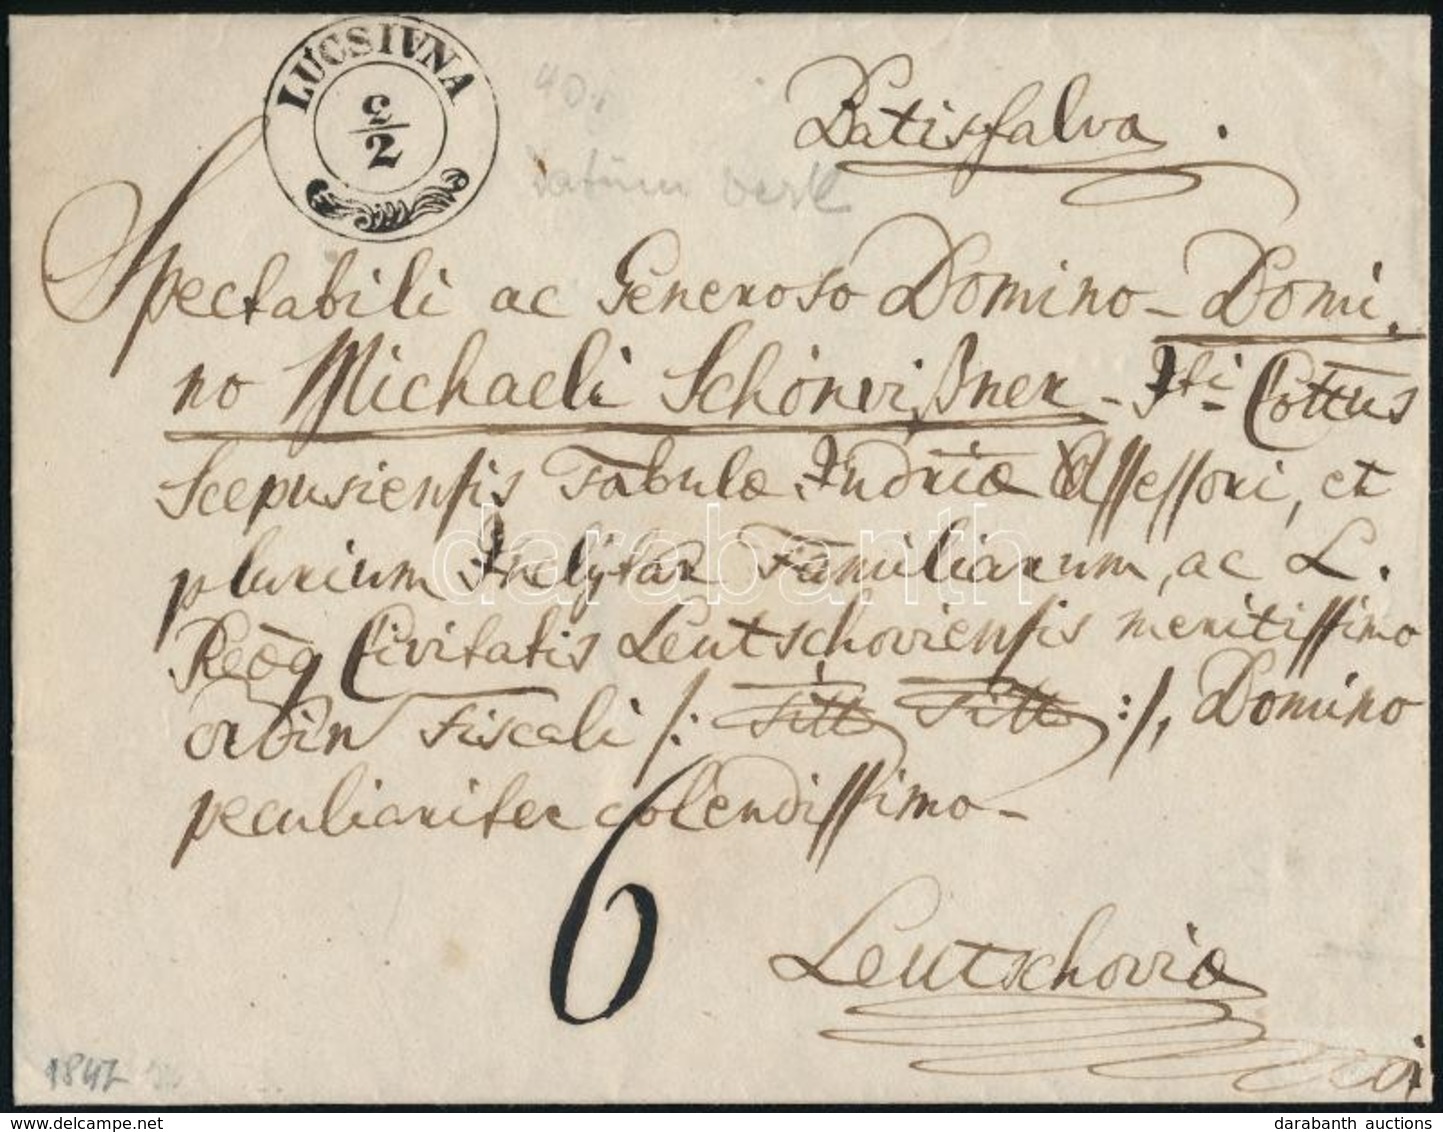 LUCSIVNA
3/2
Batisfalva.
Datum verk
Spectabili ac Generoso Domino – Domi,
no Michaeli Schönvißner – Iti Cottus
Scepusiensis Tabulæ Iudriæ Assessori, et
plurium Inclytar Familiarum, ac L.
Regq Civitatis Leutschoviensis meritissimo
ordin Fiscali /: Titt Titt :/, Domino
peculiariter colendissimo –
6
Leutschoviæ
1847
darabanth
www.delcampe.net
darabanth auctions